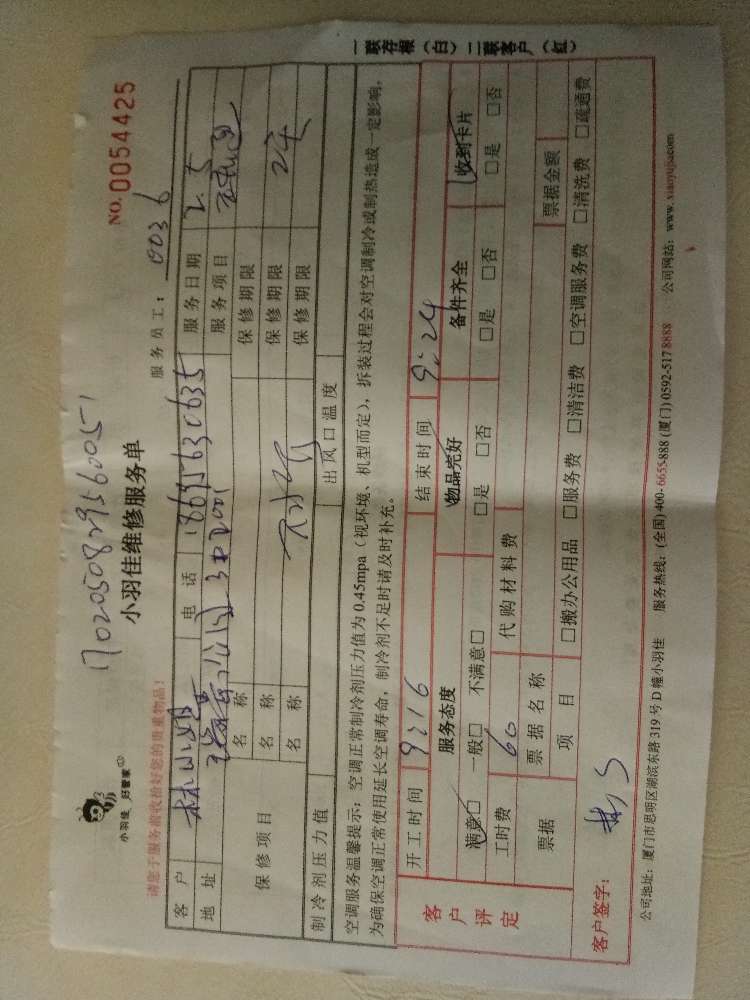 17020508295600051
NO.0054425
小羽佳 好管家
小羽佳维修服务单
请您于服务前收拾好您的贵重物品!
服务员工: 0036
客户 林小姐 电话 18695630635 服务日期 2.5
地址 服务项目
保修项目 名称 保修期限
名称 保修期限
名称 保修期限
制冷剂压力值 出风口温度
空调服务温馨提示:空调正常制冷剂压力值为0.45mpa(视环境、机型而定),拆装过程会对空调制冷或制热造成一定影响,
为确保空调正常使用延长空调寿命,制冷剂不足时请及时补充。
一联存根(白)二联客户(红)
客户评定
开工时间 9:16 结束时间 9:24
服务态度 物品完好 备件齐全 收到卡片
满意□ 一般□ 不满意□ □是 □否 □是 □否 □是 □否
工时费 60 代购材料费
票据 票据名称 票据金额
项目 □搬办公用品 □服务费 □清洁费 □空调服务费 □清洗费 □疏通费
客户签字:
公司地址:厦门市思明区湖滨东路319号D幢小羽佳 服务热线:(全国)400-6655-888(厦门)0592-5178888 公司网站:www.xiaoyujia.com